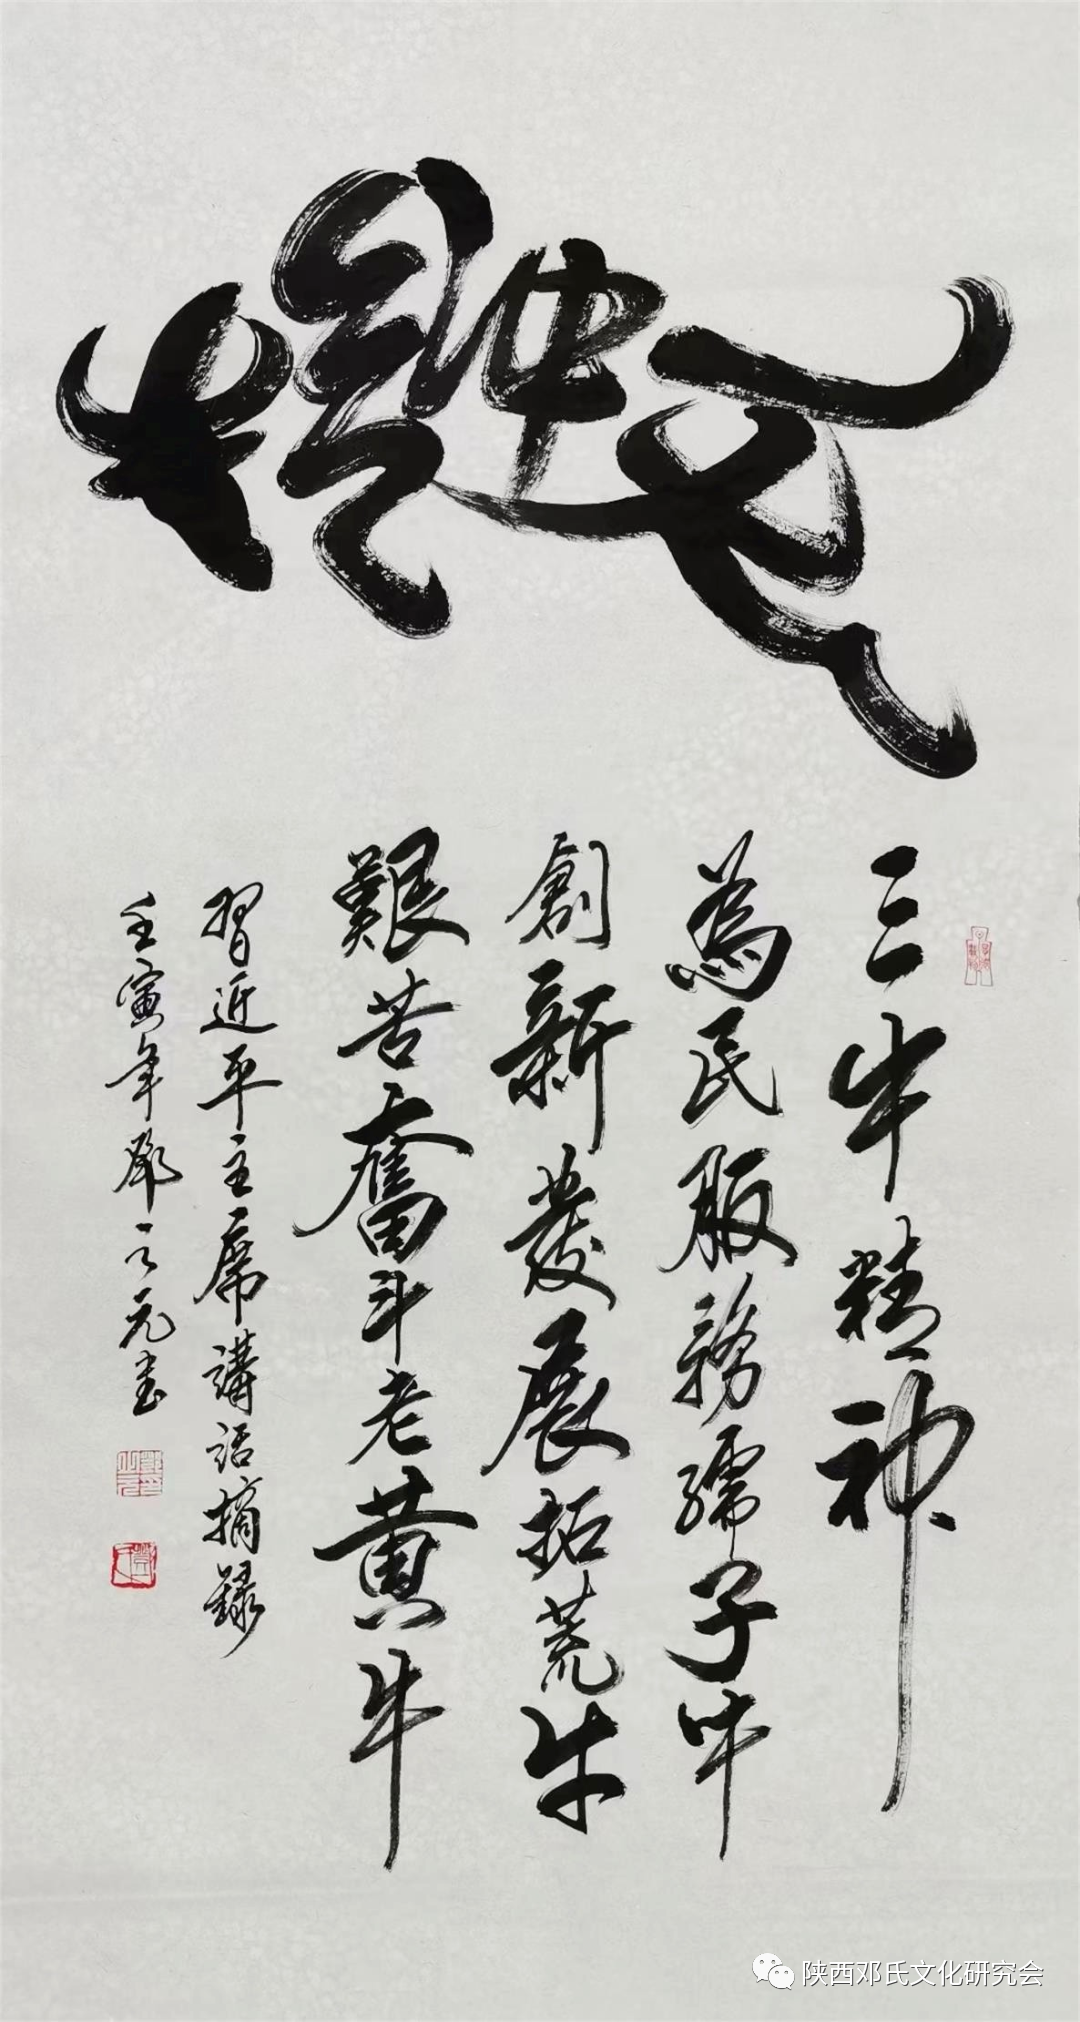 三牛精神
為民服務孺子牛
創新發展拓荒牛
艱苦奮斗老黄牛
習近平主席講話摘録
壬寅年鄧之元書
陕西邓氏文化研究会